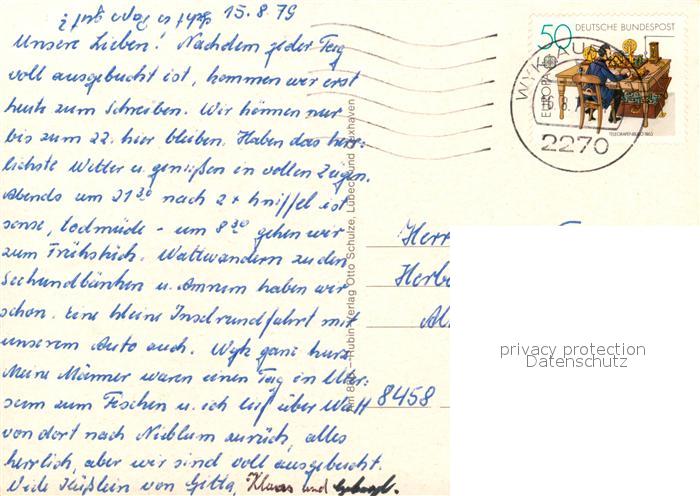 15.8.79
Geht es Papa gut?
Unsere Lieben! Nachdem jeder Tag
voll ausgebucht ist, kommen wir erst
heute zum Schreiben. Wir können nur
bis zum 22. hier bleiben. Haben das herr-
lichste Wetter u. genießen in vollen Zügen.
Abends um 21³⁰ nach 2 x Kniffel ist
sense, todmüde - um 8³⁰ gehen wir
zum Frühstück. Wattwandern zu den
Seehundbänken u. Amrum haben wir
schon. Eine kleine Inselrundfahrt mit
unserem Auto auch. Wyk ganz kurz.
Meine Männer waren einen Tag in
zum Fischen u. ich lief über Watt
von dort nach Nieblum zurück, alles
herrlich, aber wir sind voll ausgebucht.
Viele Küßlein von Gitta, Klaus und
Rubin Verlag Otto Schulze, Lübeck und Cuxhaven
50 DEUTSCHE BUNDESPOST
EUROPA
TELEGRAFENBÜRO 1863
WYK AUF
2270
Herr
Herbe
8458
privacy protection
Datenschutz